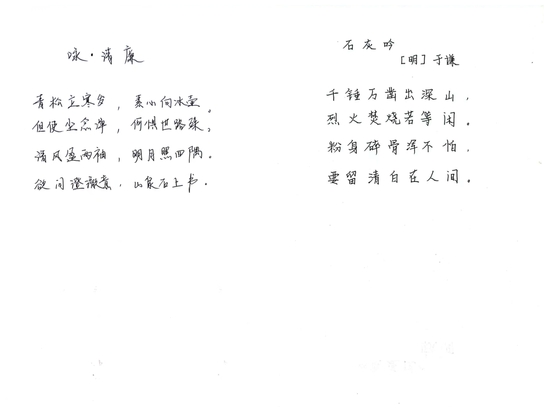 咏·清廉
青松立寒岁，素心向冰壶。
但使坐念净，何惧世路殊。
清风盈两袖，明月照四隅。
欲问澄澈意，山泉石上书。
石灰吟
［明］于谦
千锤万凿出深山，
烈火焚烧若等闲。
粉身碎骨浑不怕，
要留清白在人间。